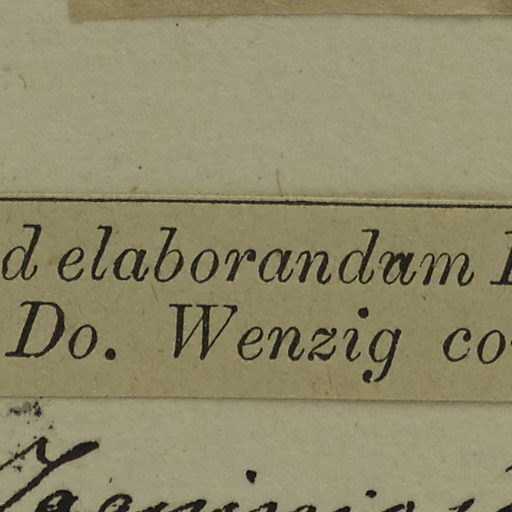 d elaborandum
Do. Wenzig co